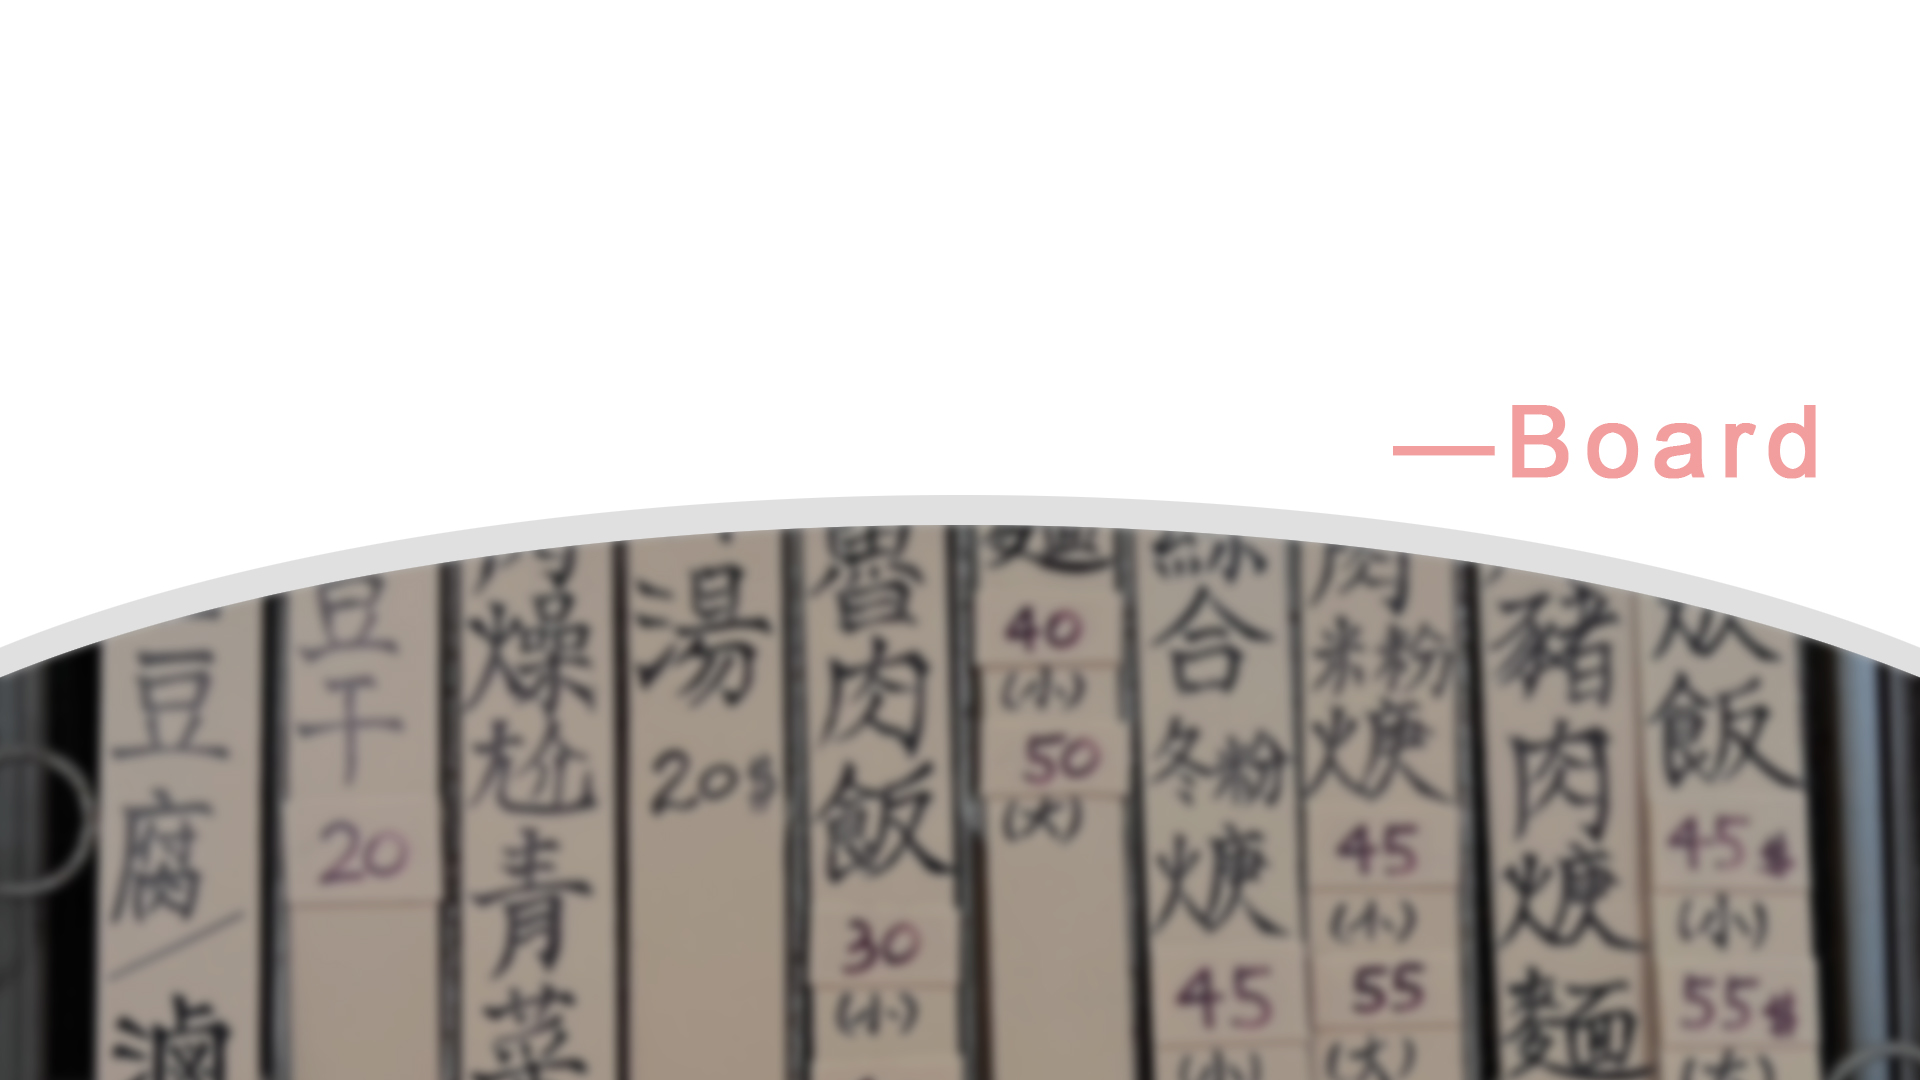 —Board
豆腐／滷
豆干
20
燥
青菜
湯
20$
魯肉飯
30
(小)
麵
40
(小)
50
(大)
綜合冬粉焿
45
(小)
肉米粉焿
45
(小)
55
(大)
豬肉焿麵
飯
45$
(小)
55$
(大)